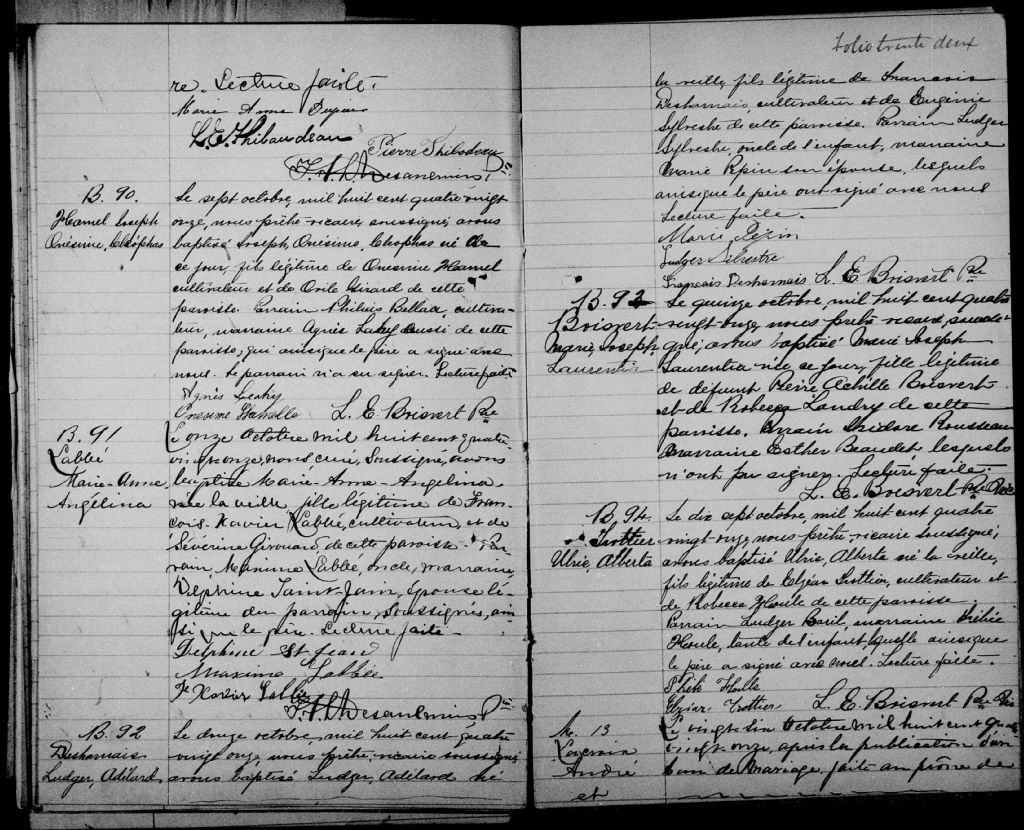 re. Lecture faite.
Marie Anna Dupuis
L.E. Thibaudeau
Pierre Thibodeau
F. A. Desaulniers Ptre
B. 90.
Hamel Joseph
Onésime, Cléophas
Le sept octobre, mil huit cent quatre vingt
onze, nous prêtre vicaire, soussigné, avons
baptisé Joseph, Onésime, Cléophas né de
ce jour, fils légitime de Onesime Hamel
cultivateur et de Orile Girard de cette
paroisse. Parrain Philias cultiva-
teur, marraine Agnès Leahy aussi de cette
paroisse, qui ainsi que le père a signé avec
nous. Le parrain n'a su signer. Lecture faite.
Agnès Leahy
Onesime Hamelle L. E. Boisvert Ptre
B. 91
Labbé
Marie-Anne,
Angélina
Le onze Octobre mil huit cent quatre
vingt-onze, nous, curé, soussigné, avons
baptisé Marie-Anne-Angélina
née la veille, fille légitime de Fran-
çois-Xavier Labbé, cultivateur, et de
Séverine Girouard, de cette paroisse. Par-
rain, Maxime Labbé, oncle, marraine,
Delphine Saint-Jean, épouse lé-
gitime du parrain, soussignés, ain-
si que le père. Lecture faite.
Delphine St Jean
Maxime Labbée
F. Xavier Labbée
F. A. Desaulniers Ptre
B. 92
Desharnais
Ludger, Adélard
Le douze octobre, mil huit cent quatre
vingt onze, nous prêtre, vicaire soussigné,
avons baptisé Ludger, Adélard né
Folio trente deux
la veille, fils légitime de Francois
Desharnais, cultivateur et de Eugénie
Sylvestre de cette paroisse. Parrain Ludger
Sylvestre oncle de l'enfant, marraine
Marie Pépin son épouse, lesquels
ainsi que le père ont signé avec nous
Lecture faite.
Marie Pépin
Ludger Silvestre
Français Desharnais L. E. Boisvert Ptre
B. 92
Boisvert
Marie, Joseph
Laurentia
Le quinze octobre, mil huit cent quatre
vingt onze, nous prêtre vicaire, soussi-
gné, avons baptisé Marie Joseph
Laurentia née ce jour, fille légitime
de défunt Pierre Achille Boisvert
et de Rebecca Landry de cette
paroisse. Parrain Isidore Rousseau
Marraine Esther Beaudet, lesquels
n'ont pu signer. Lecture faite.
L. E. Boisvert Ptre Vic
B. 94.
Trottier
Ulric, Alberta
Le dix sept octobre, mil huit cent quatre
vingt onze, nous prêtre, vicaire soussigné,
avons baptisé Ulric, Alberta né la veille,
fils légitime de Elzéar Trottier, cultivateur et
de Rebecca Houle de cette paroisse.
Parrain Ludger Baril, marraine
Houle, tante de l'enfant, quelle ainsi que
le père a signé avec nous. Lecture faite.
Houle
Elzéar Trottier L. E. Boisvert Ptre Vic
M. 13
André
et
Le vingt-six Octobre mil huit cent quatre
vingt-onze, après la publication d'un
ban de mariage, faite au prône de